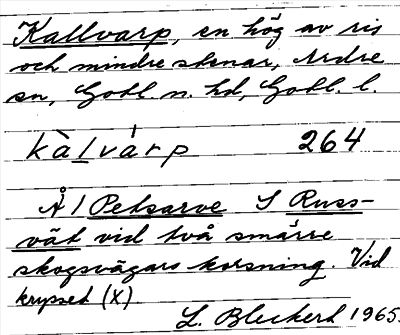 Kallvarp, en hög av ris
och mindre stenar, Ardre
sn, Gotl. n. hd, Gotl. l.
kàlvárp 264
Å / Petsarve S Russ-
vät vid två smärre
skogsvägars korsning. Vid
krysset (X)
L. Bleckert 1965.